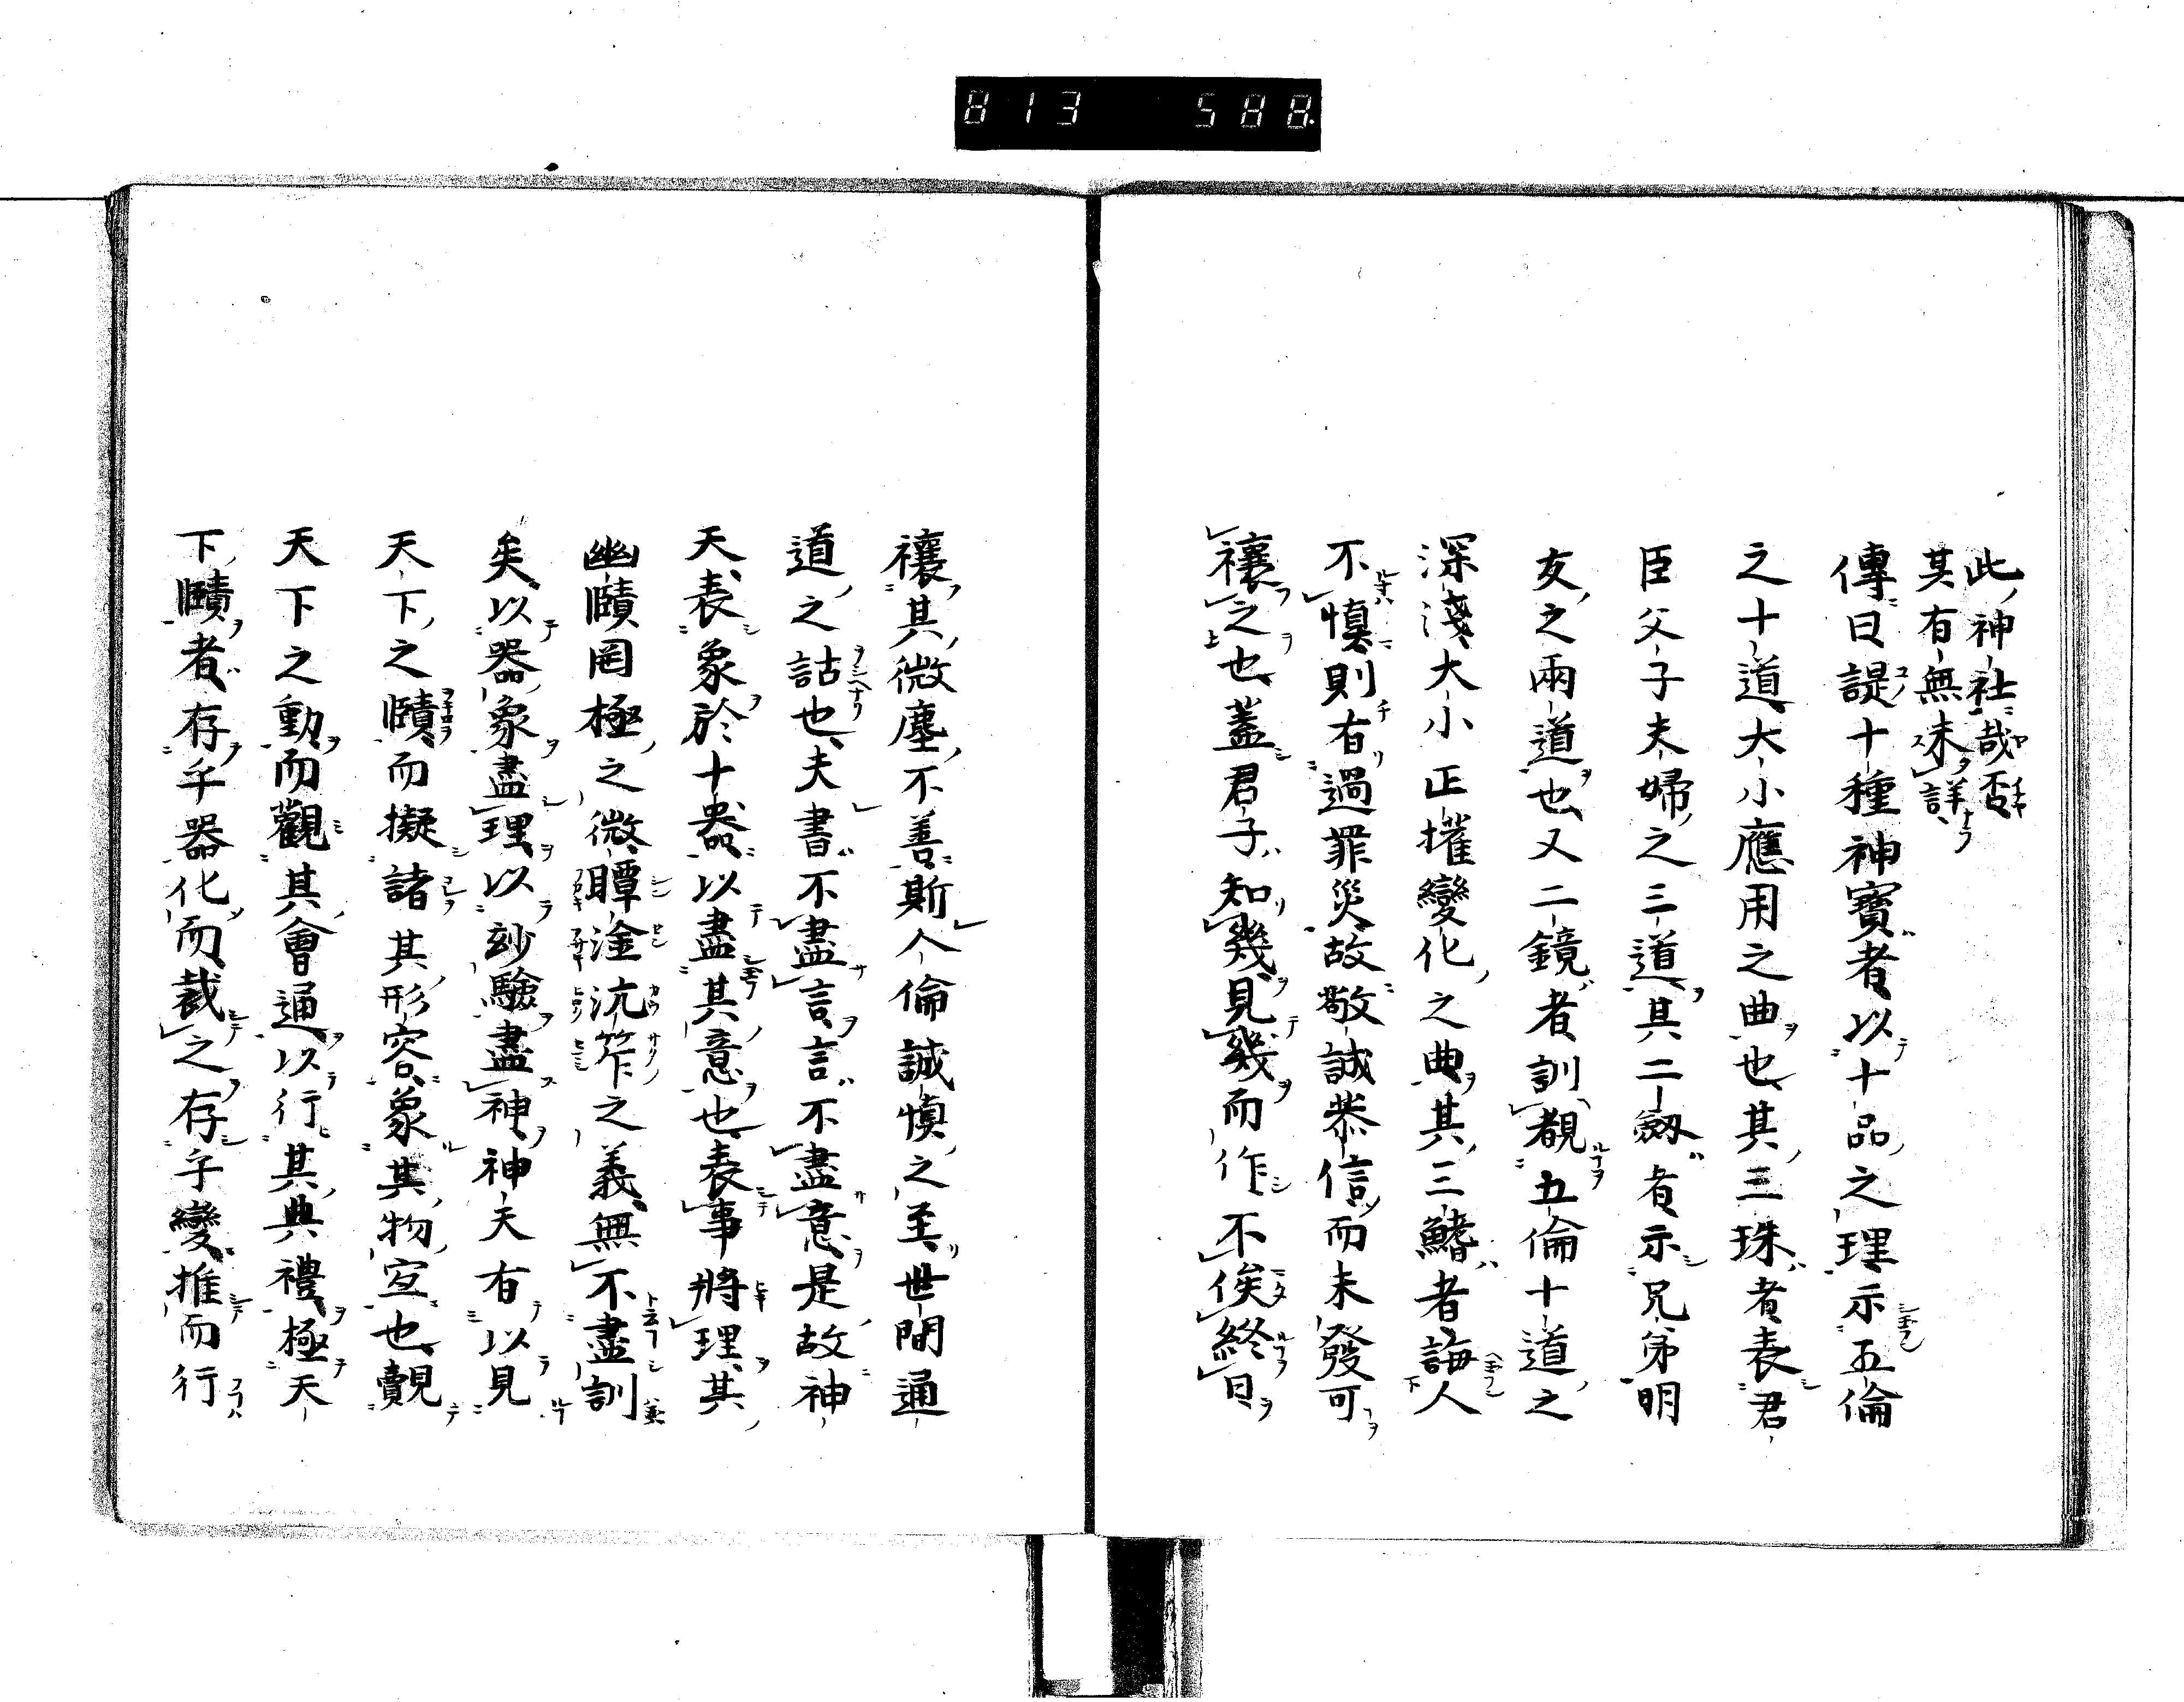 813 588
此神社哉否
其有無未詳
傳曰諟十種神寶者以十品之理示五倫
之十道大小應用之曲也其三珠者表君
臣父子夫婦之三道其二劔者示兄弟朋
友之兩道也又二鏡者訓觀五倫十道之
深淺大小正摧變化之典其三鰭者誨人
不愼則有過罪災故敬誠恭信而未發可
禳之也蓋君子知幾見幾而作不俟終日
禳其微塵不善斯人倫誠愼之至世間通
道之詁也夫書不盡言言不盡意是故神
天表象於十器以盡其意也表事將理其
幽賾罔極之微瞫淦沆笮之義無不盡訓
矣以器象盡理以玅驗盡神神天有以見
天下之賾而擬諸其形容象其物宜也覿
天下之動而觀其會通以行其典禮極天
下賾者存乎器化而裁之存乎變推而行